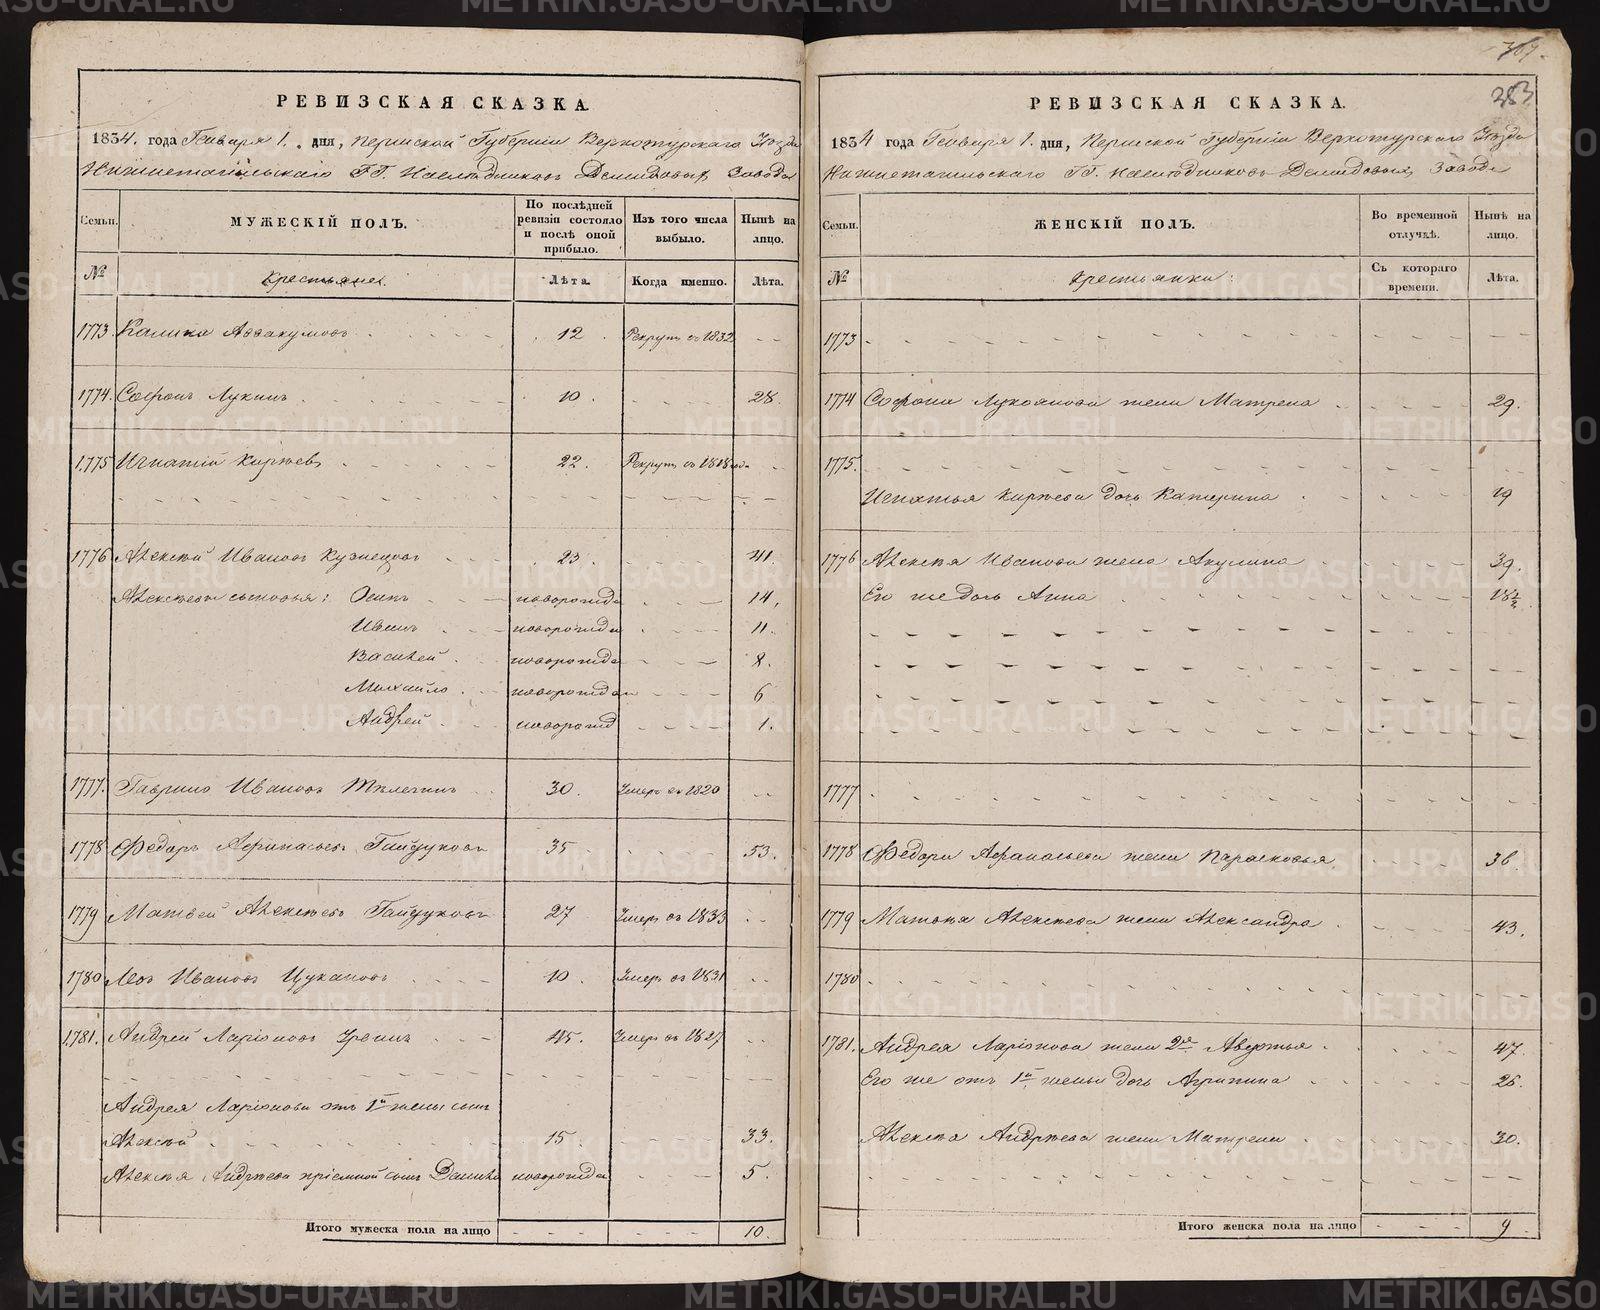 РЕВИЗСКАЯ СКАЗКА.
1834. года Генваря 1. дня, Пермской Губернiи Верхотурскаго Уѣзда
Нижнетагильскаго ГГ. Наслѣдниковъ Демидовыхъ Завода
Семьи.
МУЖЕСКIЙ ПОЛЪ.
По послѣдней ревизiи состояло и послѣ оной прибыло.
Изъ того числа выбыло.
Нынѣ на лицо.
№
Крестьяне.
Лѣта.
Когда именно.
Лѣта.
1773. Аввакумовъ 12. Рекрутъ въ 1832
1774. Софронъ Лукинъ 10. 28.
1775 Игнатiй Кирѣевъ 22. Рекрутъ съ 1818 года
1776 Алексѣй Ивановъ Кузнецовъ 23. 41.
Алексѣевы сыновья: Осипъ новорожде 14.
Иванъ новорожден 11.
Василей новорожде 8.
Михайло новорожден 6
Андрей новорожд 1.
1777. Гаврило Ивановъ 30. Умеръ въ 1820
1778 Федоръ Афанасьевъ Гайдуковъ 35 53.
1779 Матвей Алексѣевъ Гайдуковъ 27 Умеръ въ 1833
1780 Левъ Ивановъ Цукановъ 10. Умеръ въ 1831
1781. Андрей Ларiоновъ 45. Умеръ въ 1827
Андрея Ларiонова отъ 1й жены сынъ
Алексѣй 15. 33.
Алексѣя Андрѣева прiемной сынъ Данила новорожден 5.
Итого мужеска пола на лицо 10.
769.
383
РЕВИЗСКАЯ СКАЗКА.
1834 года Генваря 1. дня, Пермской Губернiи Верхотурскаго Уѣзда
Нижнетагильскаго ГГ. Наслѣдниковъ Демидовыхъ Завода
Семьи.
ЖЕНСКIЙ ПОЛЪ.
Во временной отлучкѣ.
Нынѣ на лицо.
№
Крестьянки.
Съ котораго времени.
Лѣта.
1773
1774 Софона Лукоянова жена Матрена 29.
1775.
Игнатья Кирѣева дочь Катерина 19
1776 Алексѣя Иванова жена Акулина 39.
Его же дочь Анна 18½
1777
1778 Федора Афанасьева жена Парасковья 36
1779 Матвѣя Алексѣева жена Александра 43.
1780
1781. Андрея Ларiонова жена 2я Авдотья 47.
Его же отъ 1й жены дочь Агрипина 26.
Алексѣя Андрѣева жена Матрена 30.
Итого женска пола на лицо 9